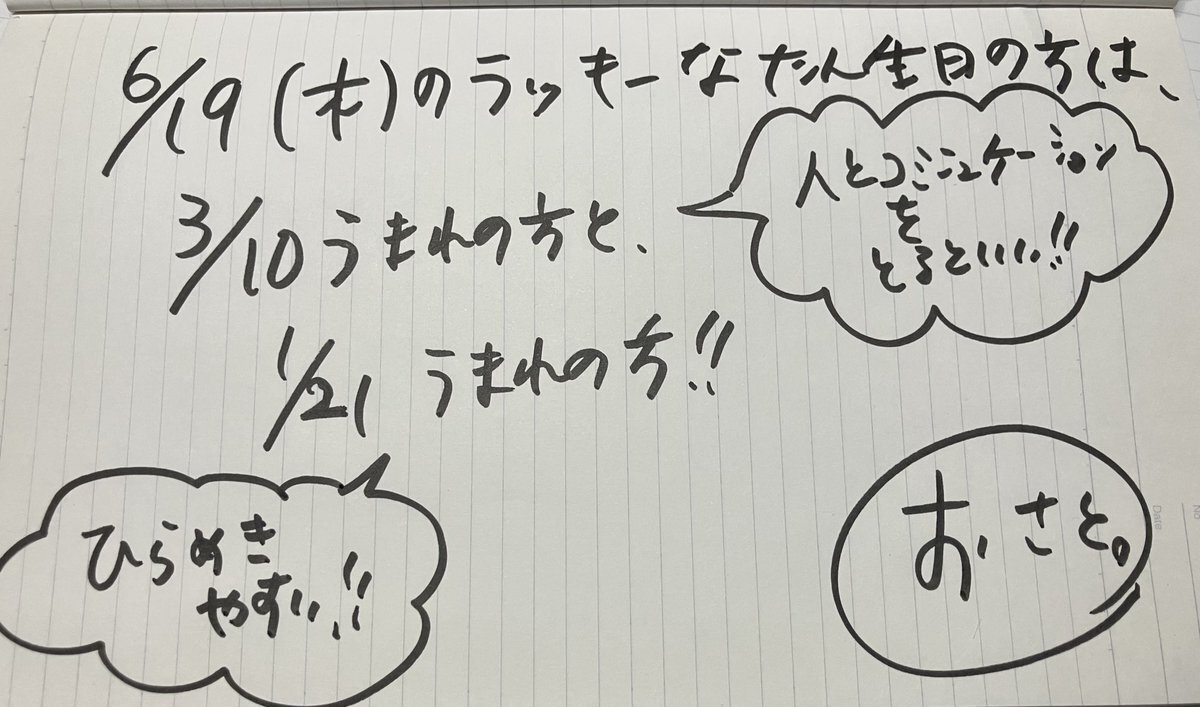 6/19(木)のラッキーなたん生日の方は、
人とコミュニケーション
を
とるといい!!
3/10うまれの方と、
1/21 うまれの方!!
ひらめき
やすい!!
おさと。